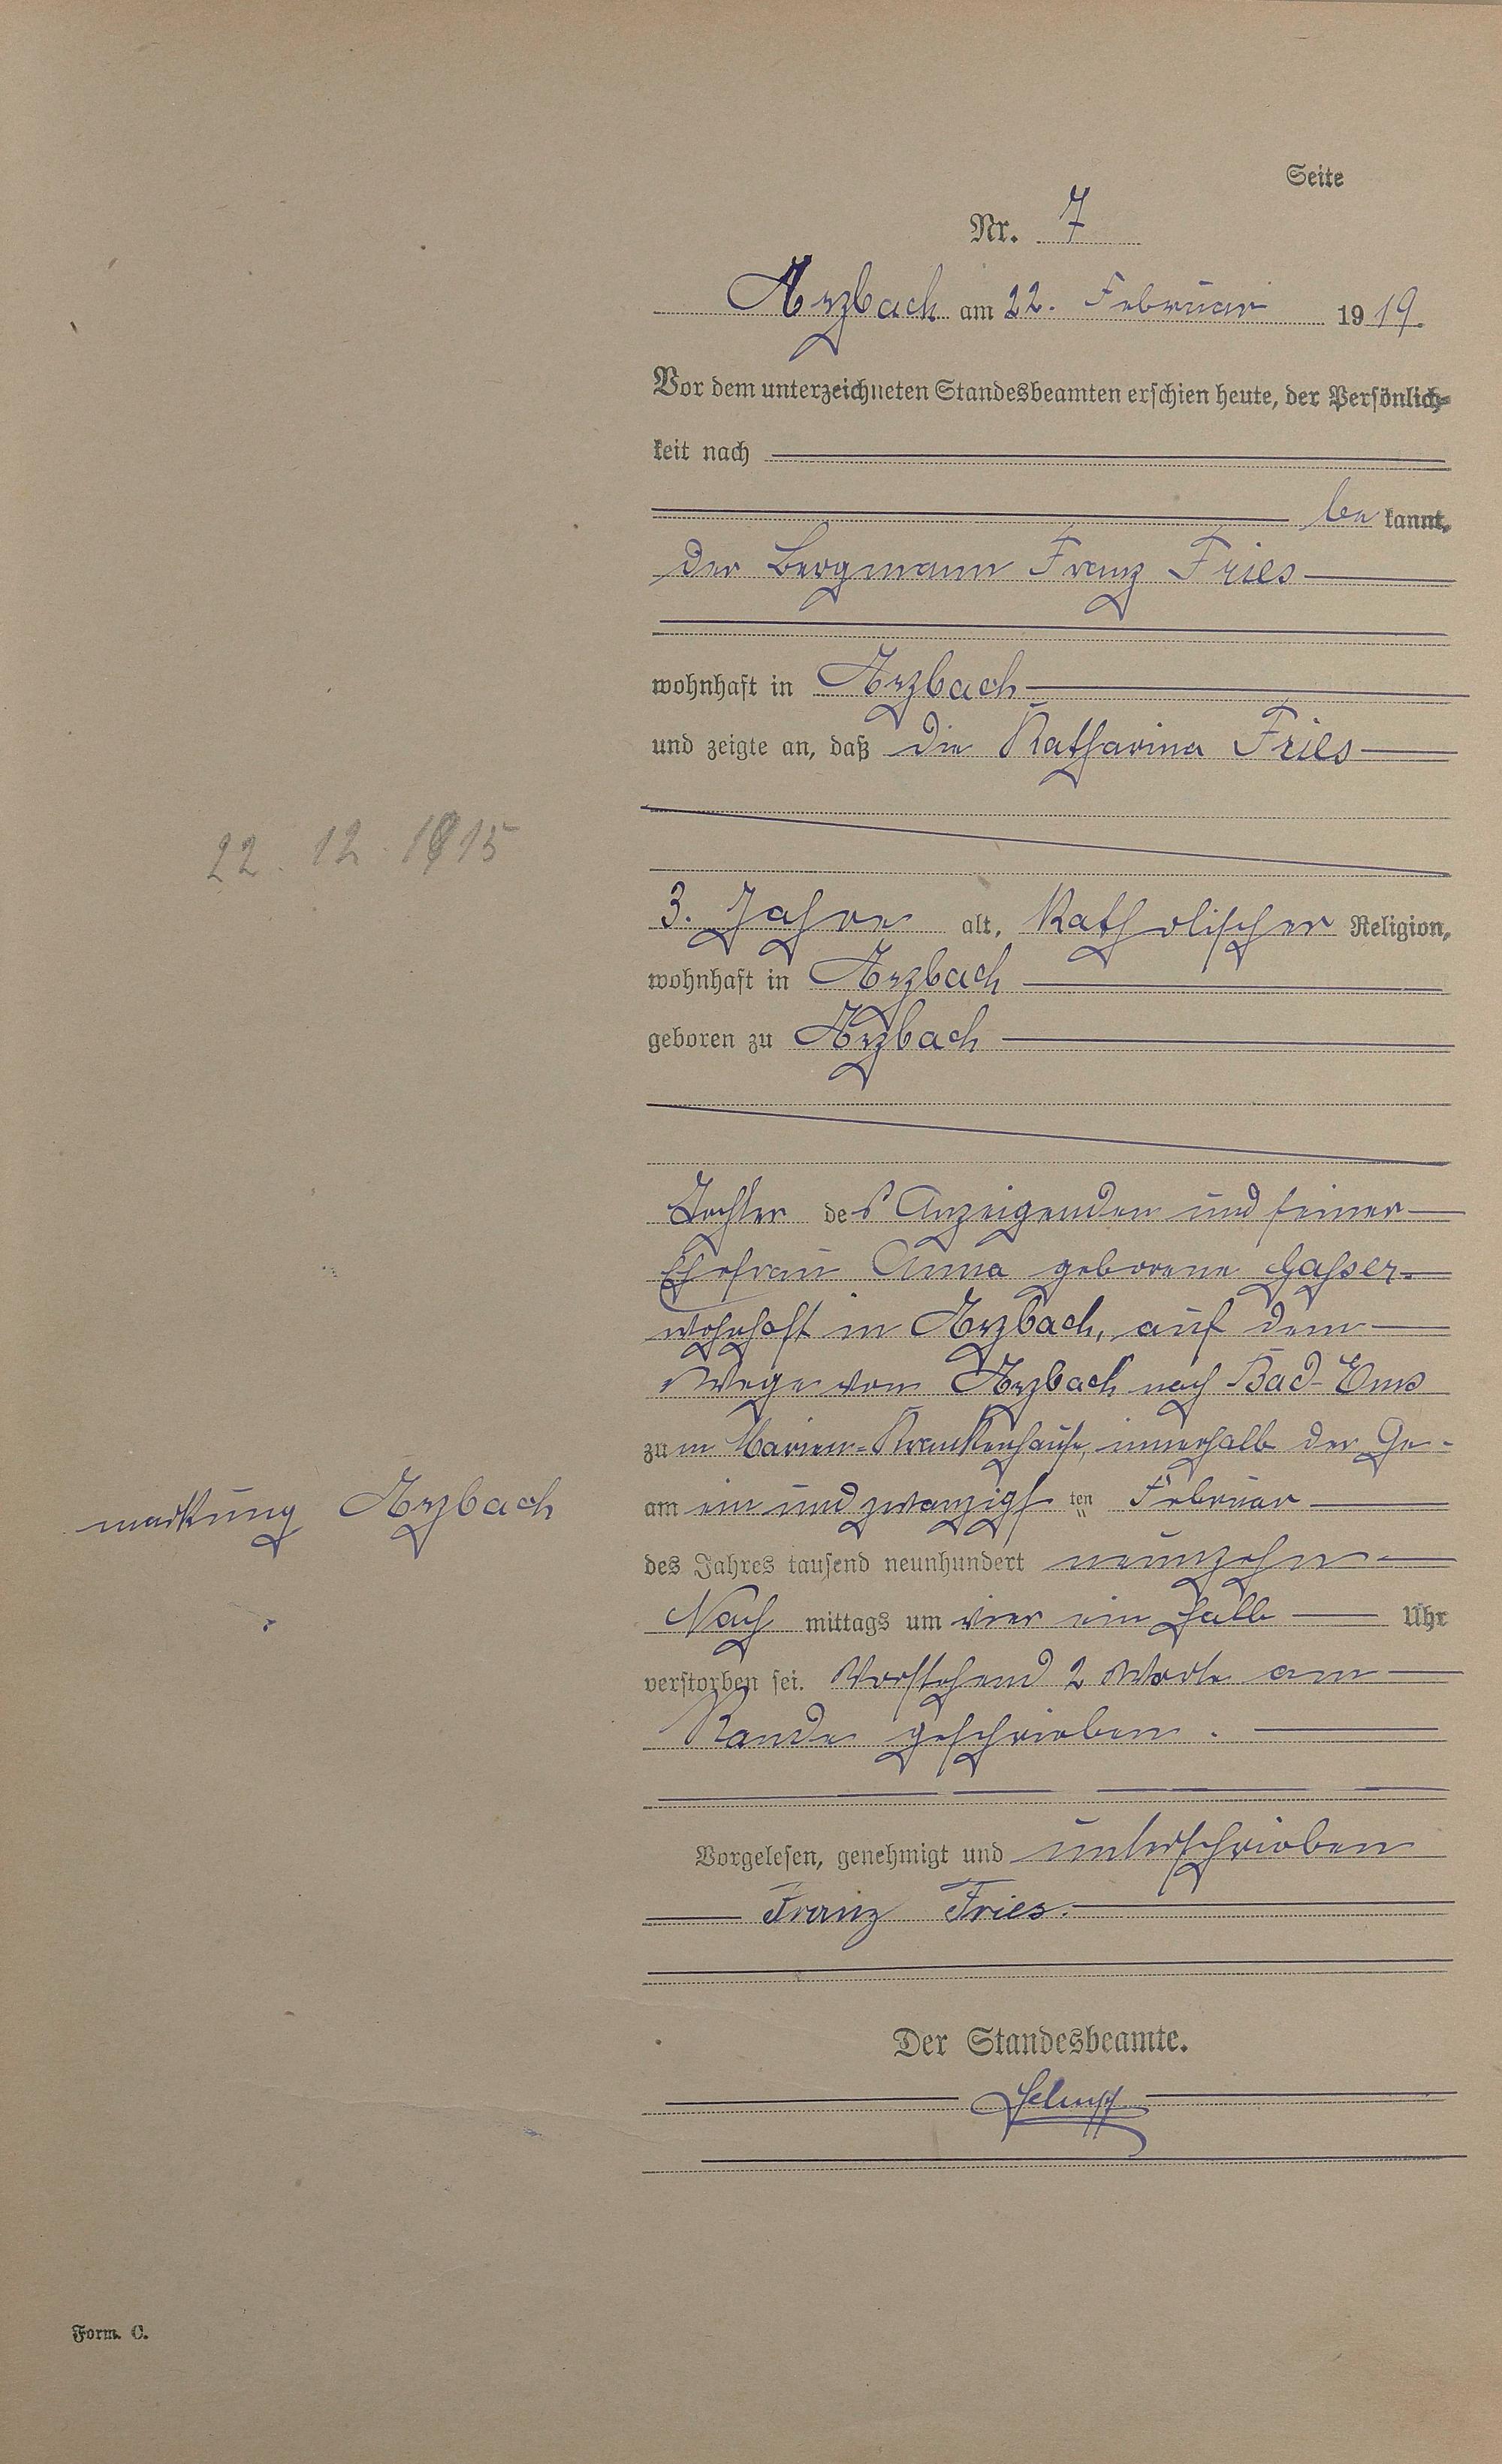 Seite
Nr. 7
Arzbach am 22. Februar 1919.
Vor dem unterzeichneten Standesbeamten erschien heute, der Persönlich-
keit nach
be kannt,
der Bergmann Franz Fries
wohnhaft in Arzbach
und zeigte an, daß die Katharina Fries
22. 12. 1915
3. Jahre alt, Katholischer Religion,
wohnhaft in Arzbach
geboren zu Arzbach
Tochter des Anzeigenden und seiner
Ehefrau Anna geborene Gasser
wohnhaft in Arzbach, auf dem
Wege von Arzbach nach Bad-Ems
zum Marien-Krankenhause, innerhalb der Ge-
markung Arzbach
am ein und zwanzigsten Februar
des Jahres tausend neunhundert neunzehn
Nach mittags um vier ein halb Uhr
verstorben sei. Vorstehend 2 Worte am
Rande geschrieben.
Vorgelesen, genehmigt und unterschrieben
Franz Fries.
Der Standesbeamte.
Form. C.